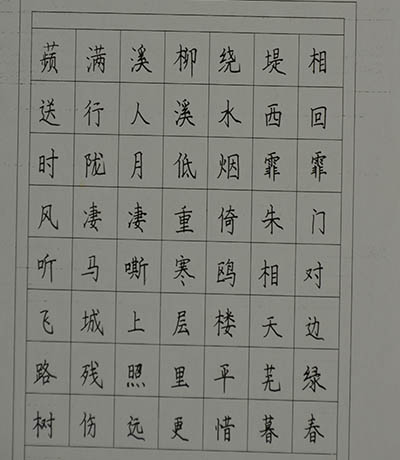 蘋满溪柳绕堤相
送行人溪水西回
时陇月低烟霏霏
风凄凄重倚朱门
听马嘶寒鸥相对
飞城上层楼天边
路残照里平芜绿
树伤远更惜暮春